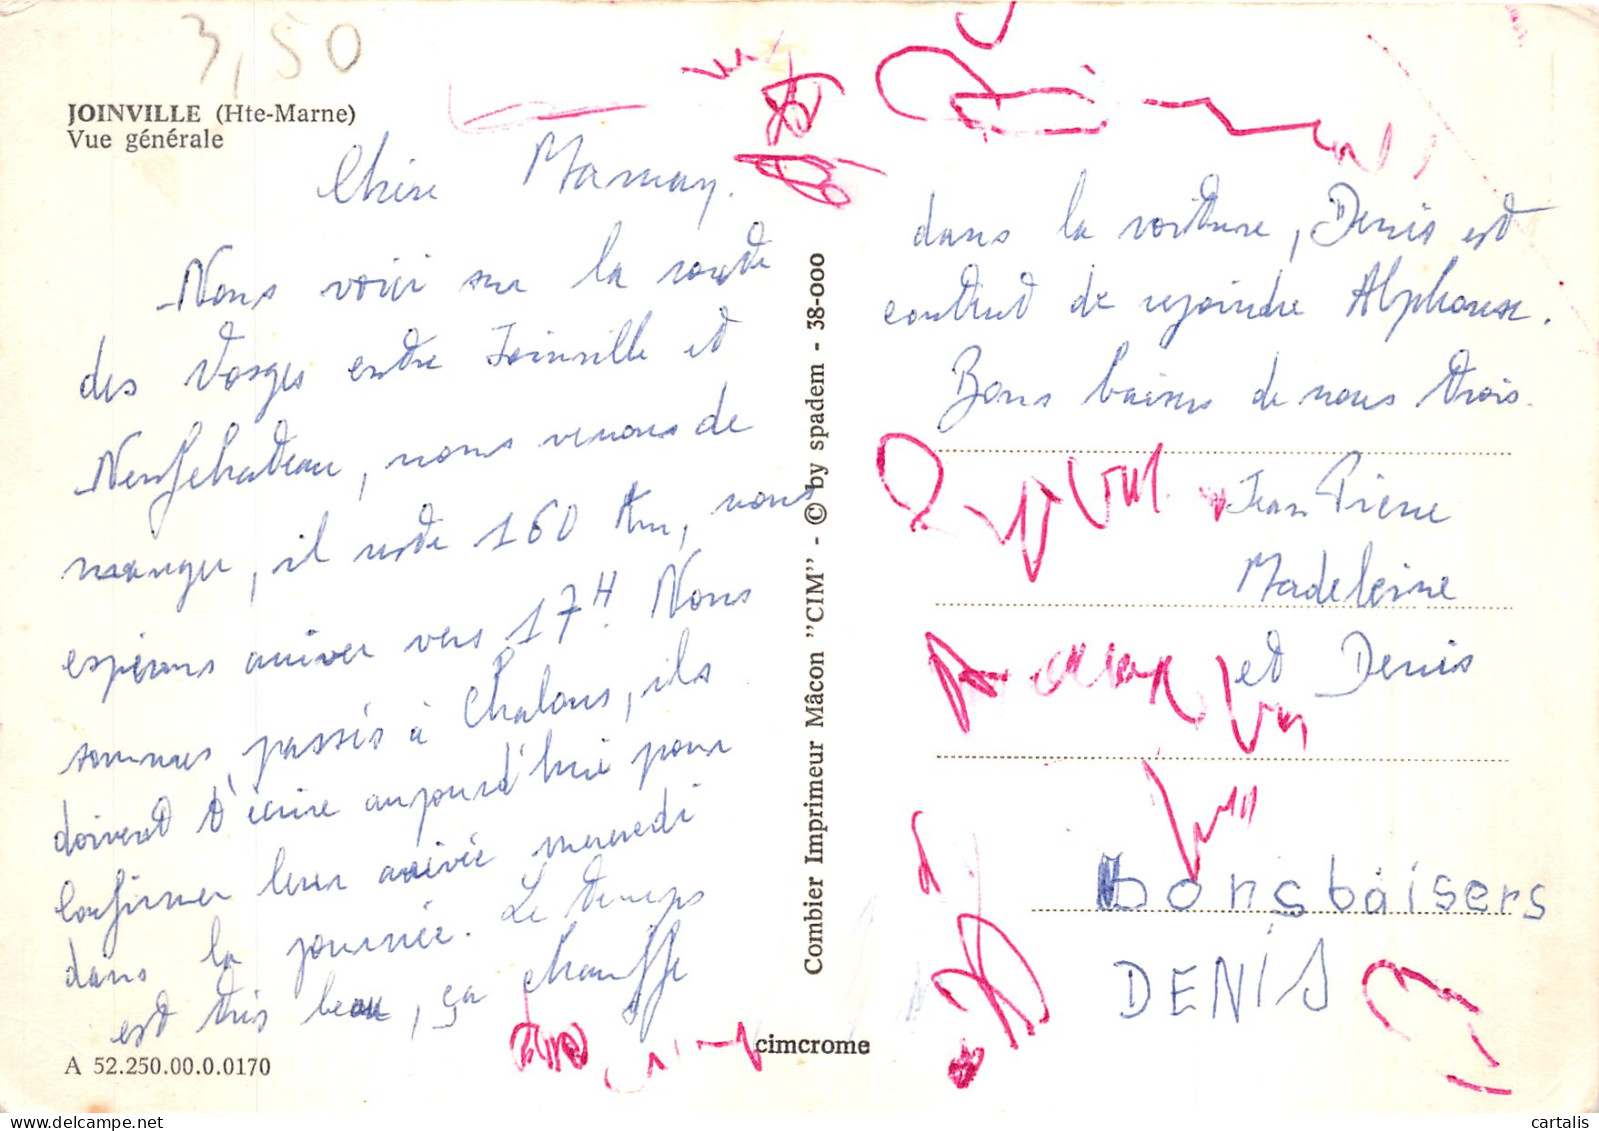 3,50
JOINVILLE (Hte-Marne)
Vue générale
Chère Mamay.
Nous voici sur la route
des Vosges entre Joinville et
Neufchateau, nous venons de
manger, il reste 160 km, nous
espérons arriver vers 17H. Nous
sommes passés à Chalons, ils
doivent t'écrire aujourd'hui pour
confirmer leur arrivée mercredi
dans la journée. Le temps
est très beau, ça chauffe
A 52.250.00.0.0170
Combier Imprimeur Mâcon "CIM" - © by spadem - 38-000
cimcrome
dans la voiture, Denis est
content de rejoindre Alphonse.
Bons baisers de nous trois.
Jean Pierre
Madeleine
et Denis
bonsbaisers
DENIS
cartalis